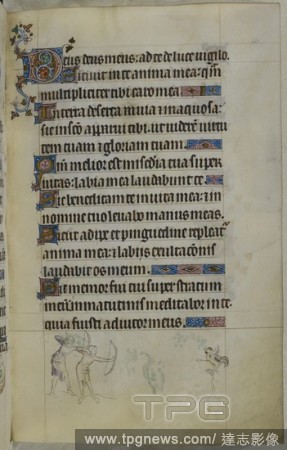 Deus deus meus: ad te de luce vigilo.
Sitivit in te anima mea: qm
multipliciter tibi caro mea
In terra deserta invia et inaquosa:
sic in sco apparui tibi. ut viderem virtu
tem tuam et gloriam tuam.
Qm melior est misedia tua super
vitas: labia mea laudabunt te.
Sic benedicam te in vita mea: et in
nomine tuo levabo manus meas.
Sicut adipe et pinguedine repleat
anima mea: et labiis exultacionis
laudabit os meum.
Si memor fui tui super stratum
meum in matutinis meditabor in te
quia fuisti adiutor meus.
TPG
www.tpgnews.com/ 達志影像